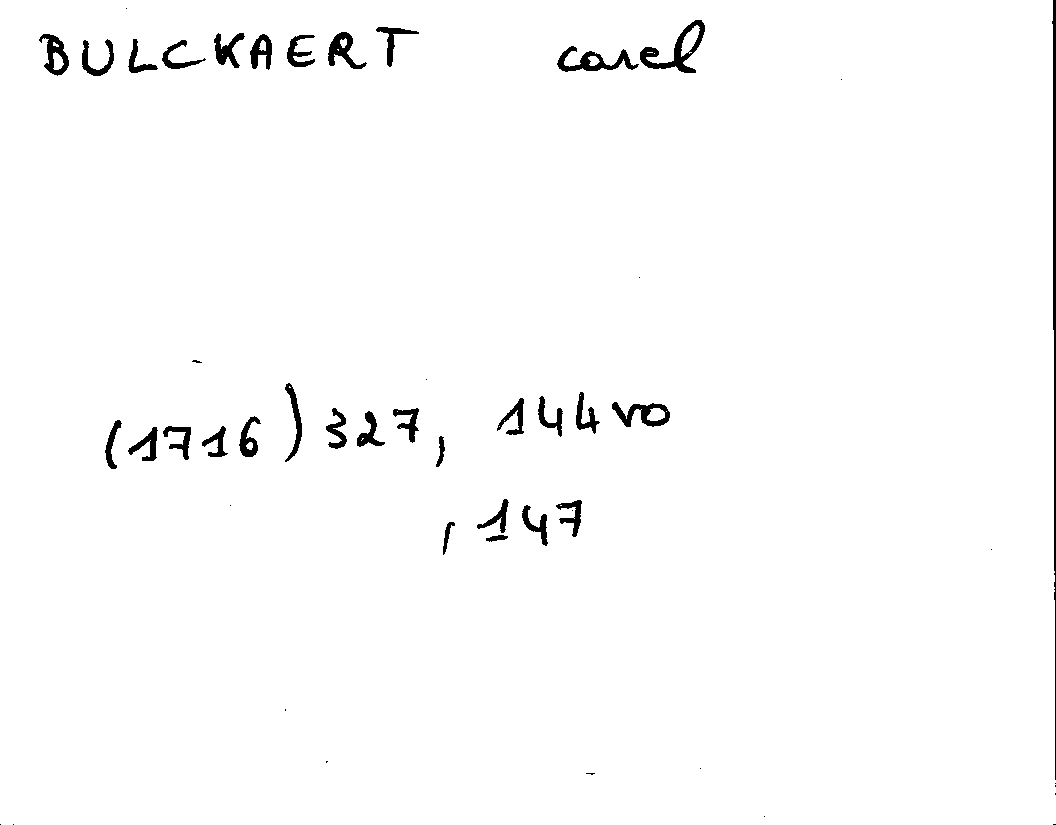 BULCKAERT carel
(1716) 327, 144vo
, 147